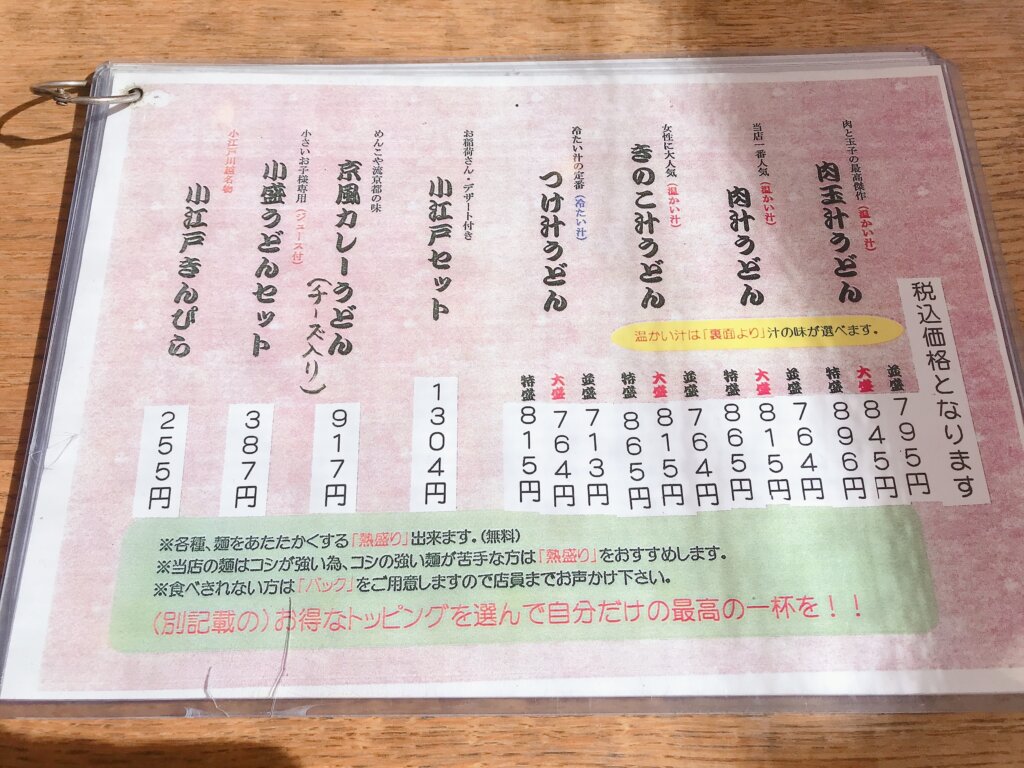 税込価格となります
肉と玉子の最高傑作(温かい汁)
肉玉汁うどん
並盛 795円
大盛 845円
特盛 896円
当店一番人気(温かい汁)
肉汁うどん
並盛 764円
大盛 815円
特盛 865円
女性に大人気(温かい汁)
きのこ汁うどん
並盛 764円
大盛 815円
特盛 865円
温かい汁は「裏面より」汁の味が選べます。
冷たい汁の定番(冷たい汁)
つけ汁うどん
並盛 713円
大盛 764円
特盛 815円
お稲荷さん・デザート付き
小江戸セット
1304円
めんこや流京都の味
京風カレーうどん
(チーズ入り)
917円
小さいお子様専用(ジュース付)
小盛うどんセット
387円
小江戸川越名物
小江戸きんぴら
255円
※各種、麺をあたたかくする「熱盛り」出来ます。(無料)
※当店の麺はコシが強い為、コシの強い麺が苦手な方は「熱盛り」をおすすめします。
※食べきれない方は「パック」をご用意しますので店員までお声かけ下さい。
(別記載の)お得なトッピングを選んで自分だけの最高の一杯を!!